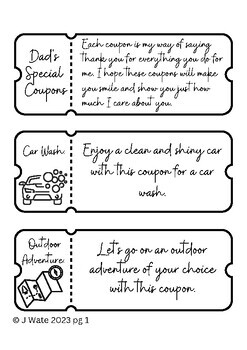 Dad's
Special
Coupons
Each coupon is my way of saying
thank you for everything you do for
me. I hope these coupons will make
you smile and show you just how
much I care about you.
Car Wash:
Enjoy a clean and shiny car
with this coupon for a car
wash.
Outdoor
Adventure:
Let's go on an outdoor
adventure of your choice
with this coupon.
© J Wate 2023 pg 1